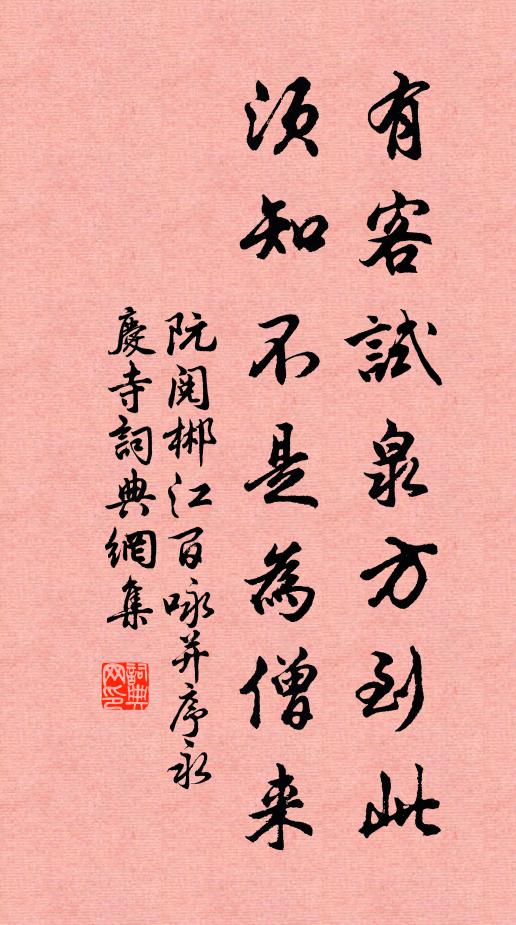 有客試泉方到此
須知不是為僧来
阮閱郴江百咏并序永
慶寺詞典網集
詞典网印